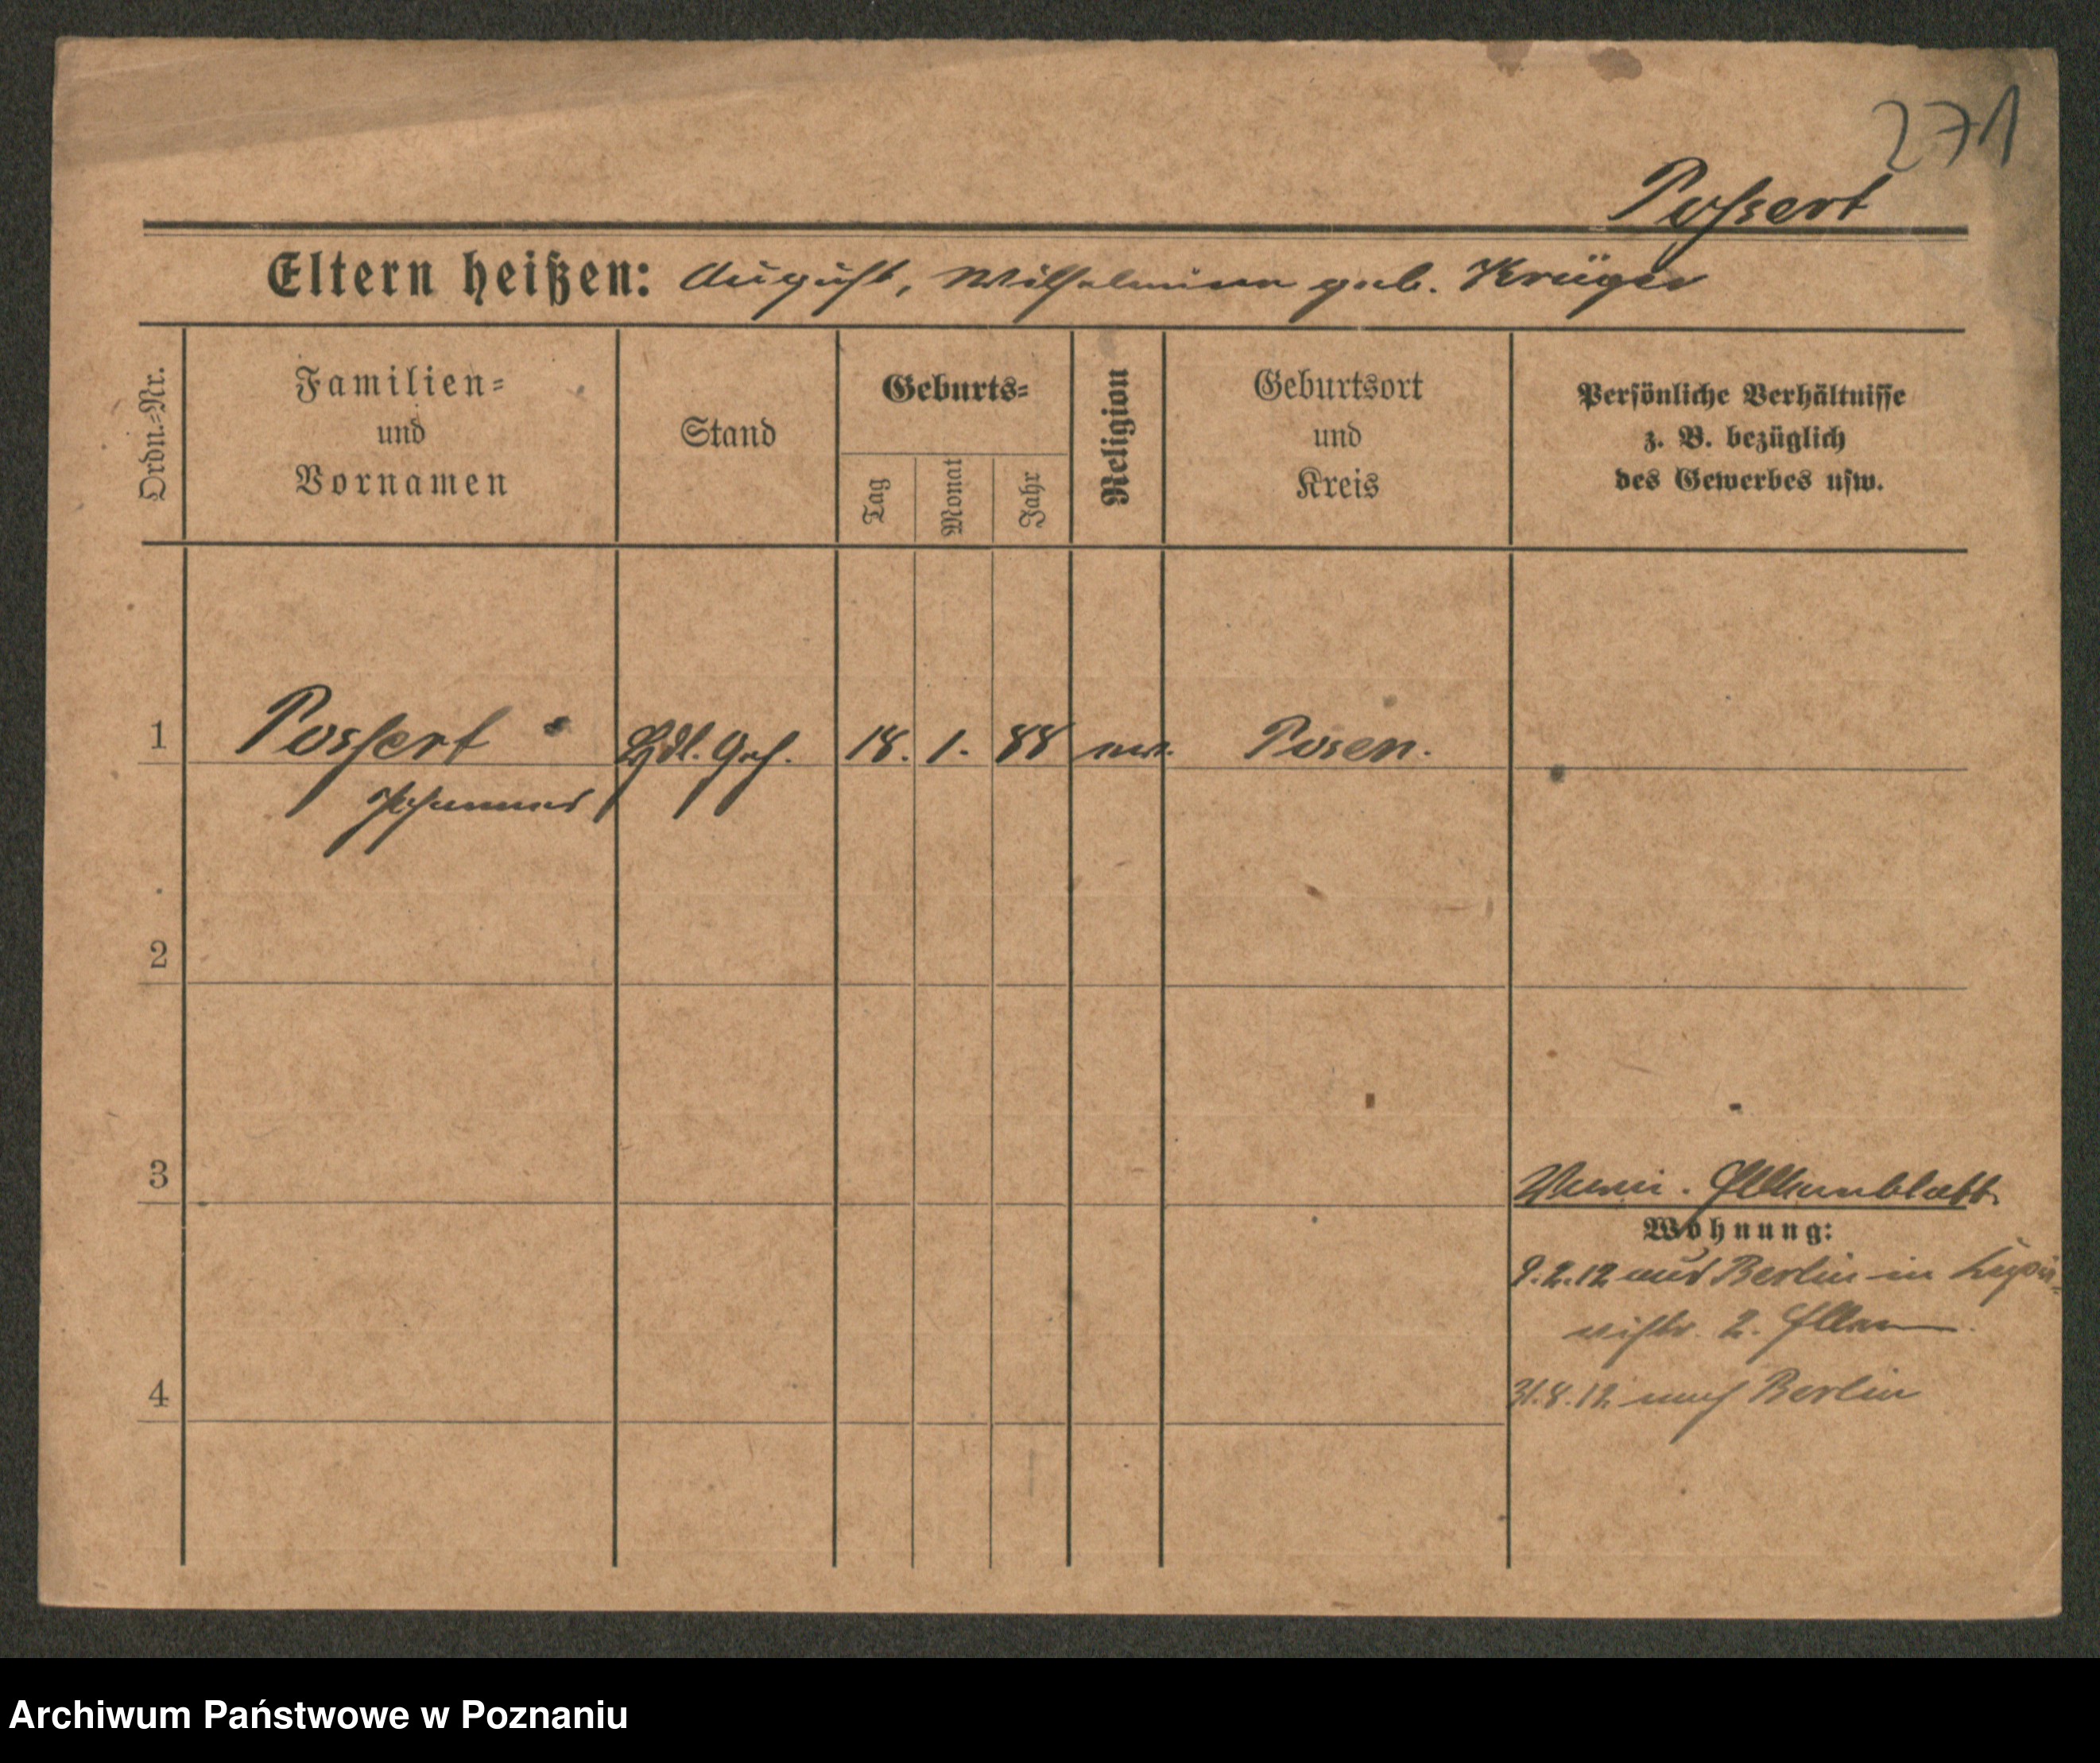 271
Possert
Eltern heißen: August, Wilhelmine geb. Krüger
Ordn.=Nr.
Familien=
und
Vornamen
Stand
Geburts=
Tag
Monat
Jahr
Religion
Geburtsort
und
Kreis
Persönliche Verhältnisse
z. B. bezüglich
des Gewerbes usw.
1 Possert Hdl. Geh. 18. 1. 88 Posen.
Johannes
2
3
Elternblatt
Wohnung:
9.2.12 aus Berlin in
2. Eltern
4
31.8.12 nach Berlin
Archiwum Państwowe w Poznaniu